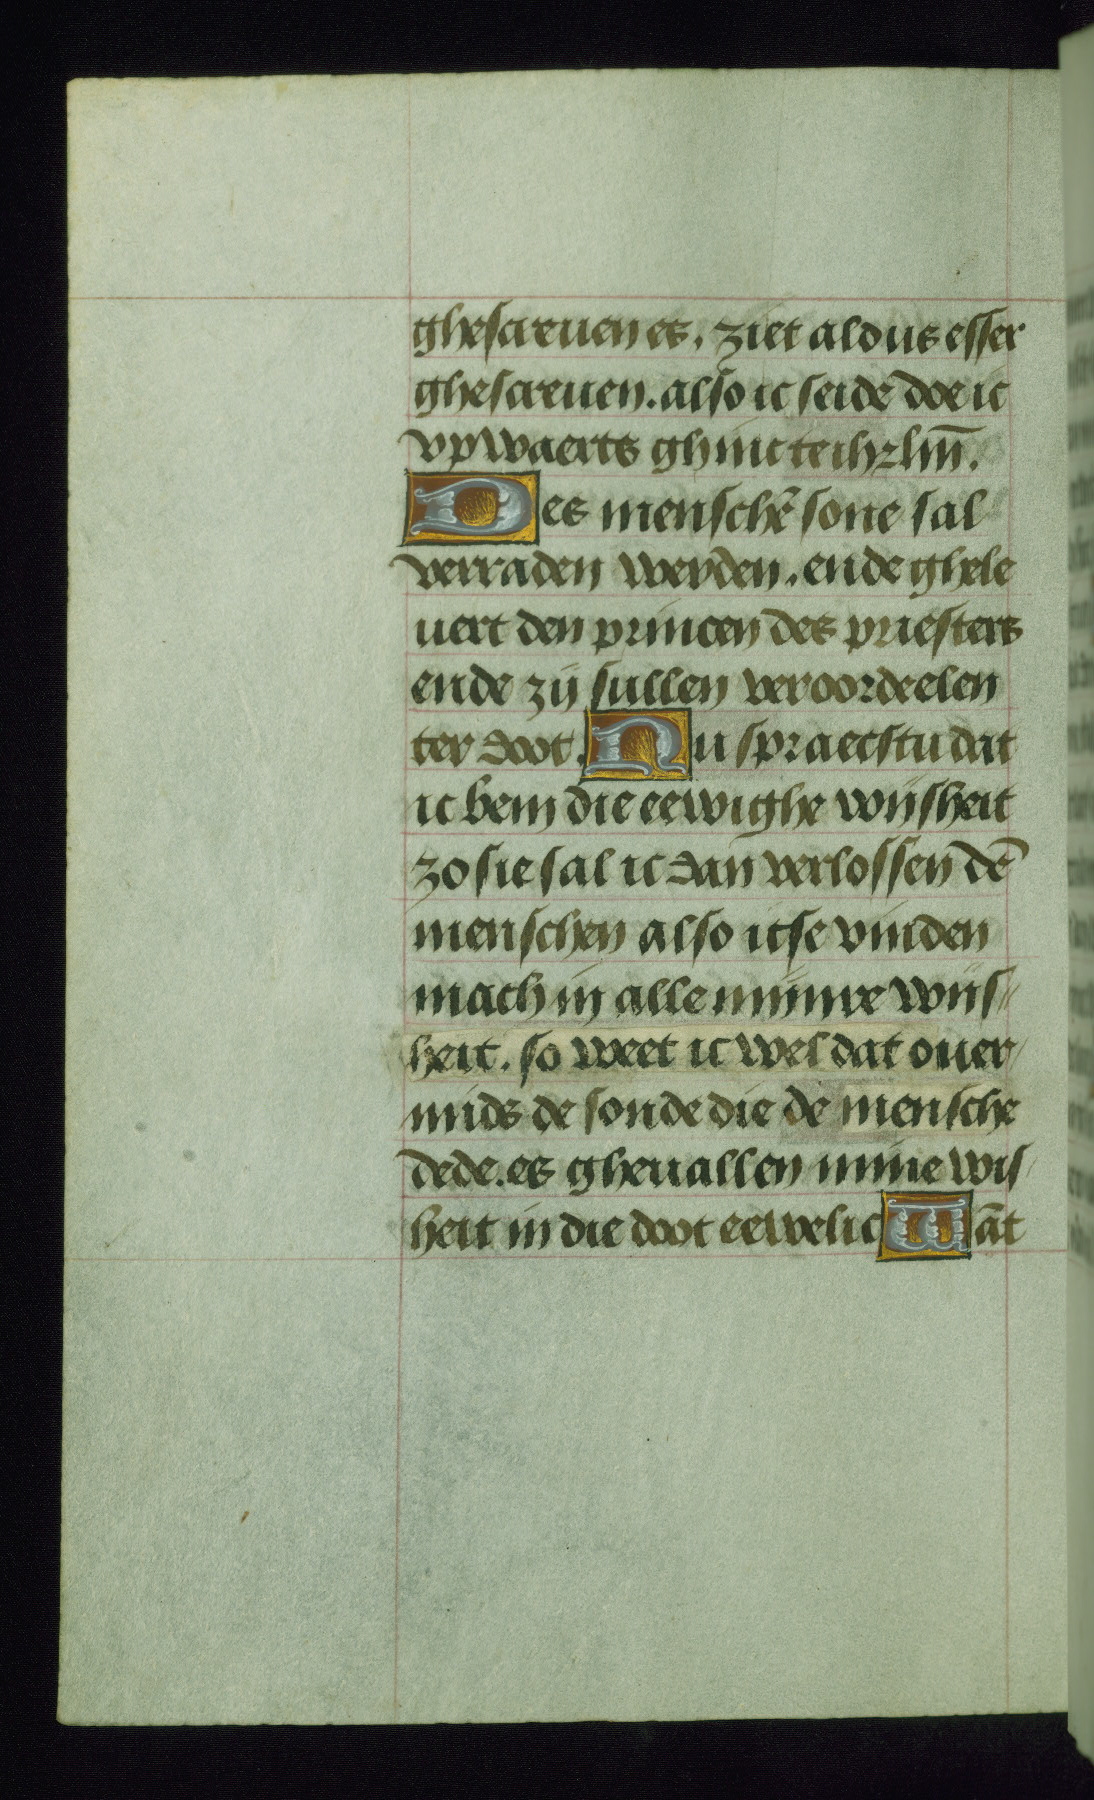 ghescreuen es. ziet aldus esser
ghescreuen. also ic seide doe ic
vpwaerts ghinc te ihrlm̅.
Des menschē sone sal
verraden werden. ende ghele
uert den princen des priesters
ende zij sullen veroordeelen
ter doot. Nu spraecstu dat
ic bem die eewighe wijsheit
zo sie sal ic dan verlossen dē
menschen also icse vinden
mach in alle mijnre wijs
heit. so weet ic wel dat ouer
mids de sonde die de mensche
dede. es gheuallen mine wis
heit in die doot eewelic Wāt